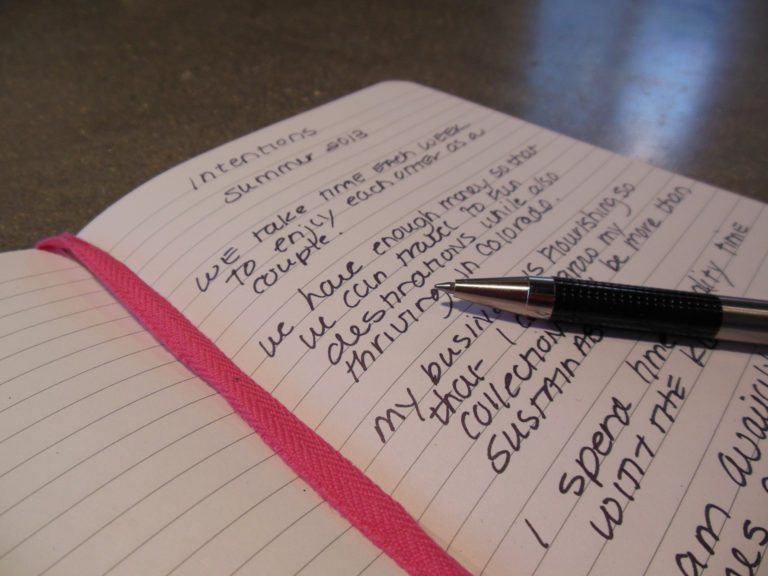 Intentions
Summer 2013
WE take TIME EACH WEEK
TO enjoy each other as a
couple.
we have enough money so that
we can travel to fun
destinations while also
thriving in Colorado.
my busin is flourishing so
that I grow my
collection be more than
SUSTAINAB
I spend time quality TIME
WITH THE
am